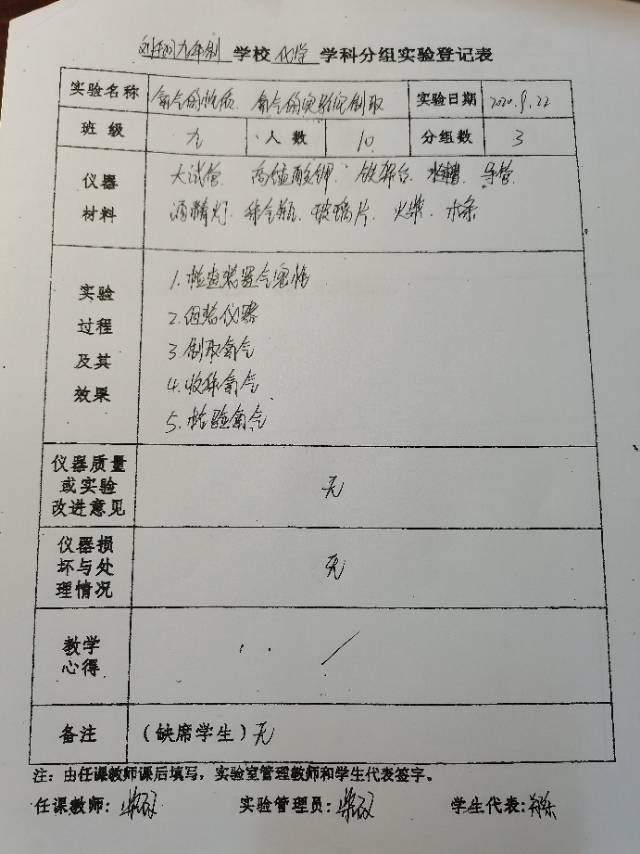 九年制 学校 化学 学科分组实验登记表
实验名称 氧气的性质 氧气的实验室制取 实验日期 2020.9.22
班 级 九 人 数 10 分组数 3
仪器 大试管 高锰酸钾 铁架台 水槽 导管
材料 酒精灯 集气瓶 玻璃片 火柴 木条
实验
过程
及其
效果
1.检查装置气密性
2.组装仪器
3.制取氧气
4.收集氧气
5.检验氧气
仪器质量
或实验
改进意见
无
仪器损
坏与处
理情况
无
教学
心得
备注 (缺席学生)无
注:由任课教师课后填写,实验室管理教师和学生代表签字。
任课教师: 实验管理员: 学生代表: